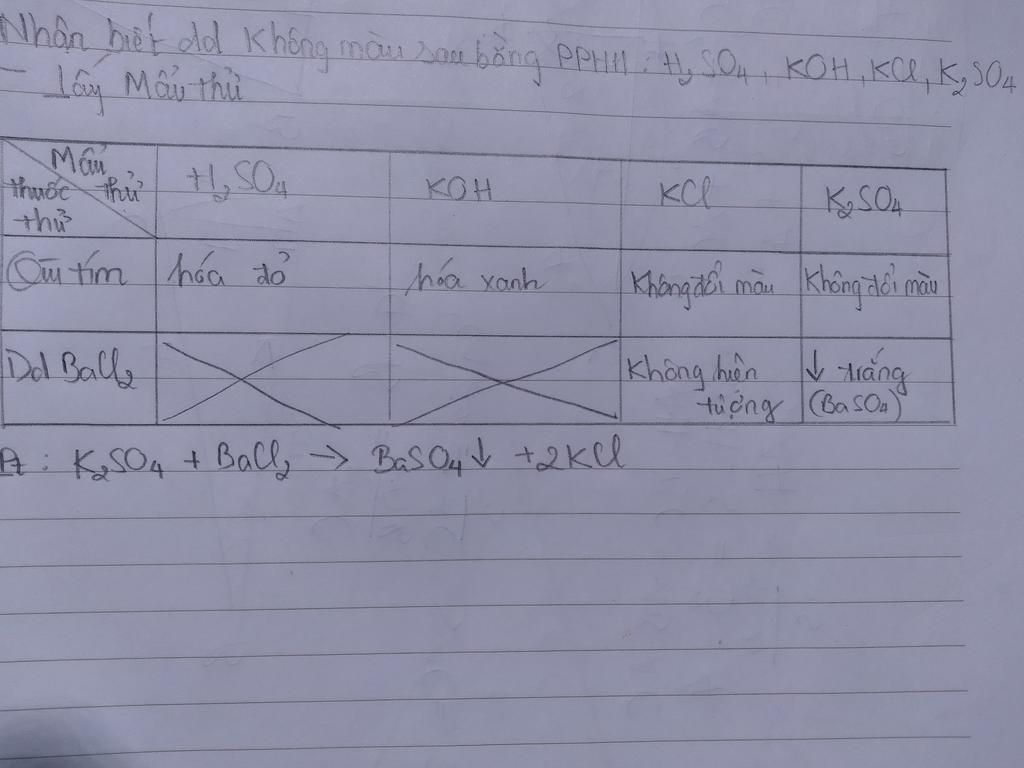 Nhận biết dd không màu sau bằng PPHH: H₂SO₄, KOH, KCl, K₂SO₄
- Lấy Mẩu thử
Mẩu thử
thuốc thử
H₂SO₄
KOH
KCl
K₂SO₄
Quì tím
hóa đỏ
hóa xanh
Không đổi màu
Không đổi màu
Dd BaCl₂
Không hiện
tượng
↓ trắng
(BaSO₄)
Pt: K₂SO₄ + BaCl₂ → BaSO₄↓ + 2KCl